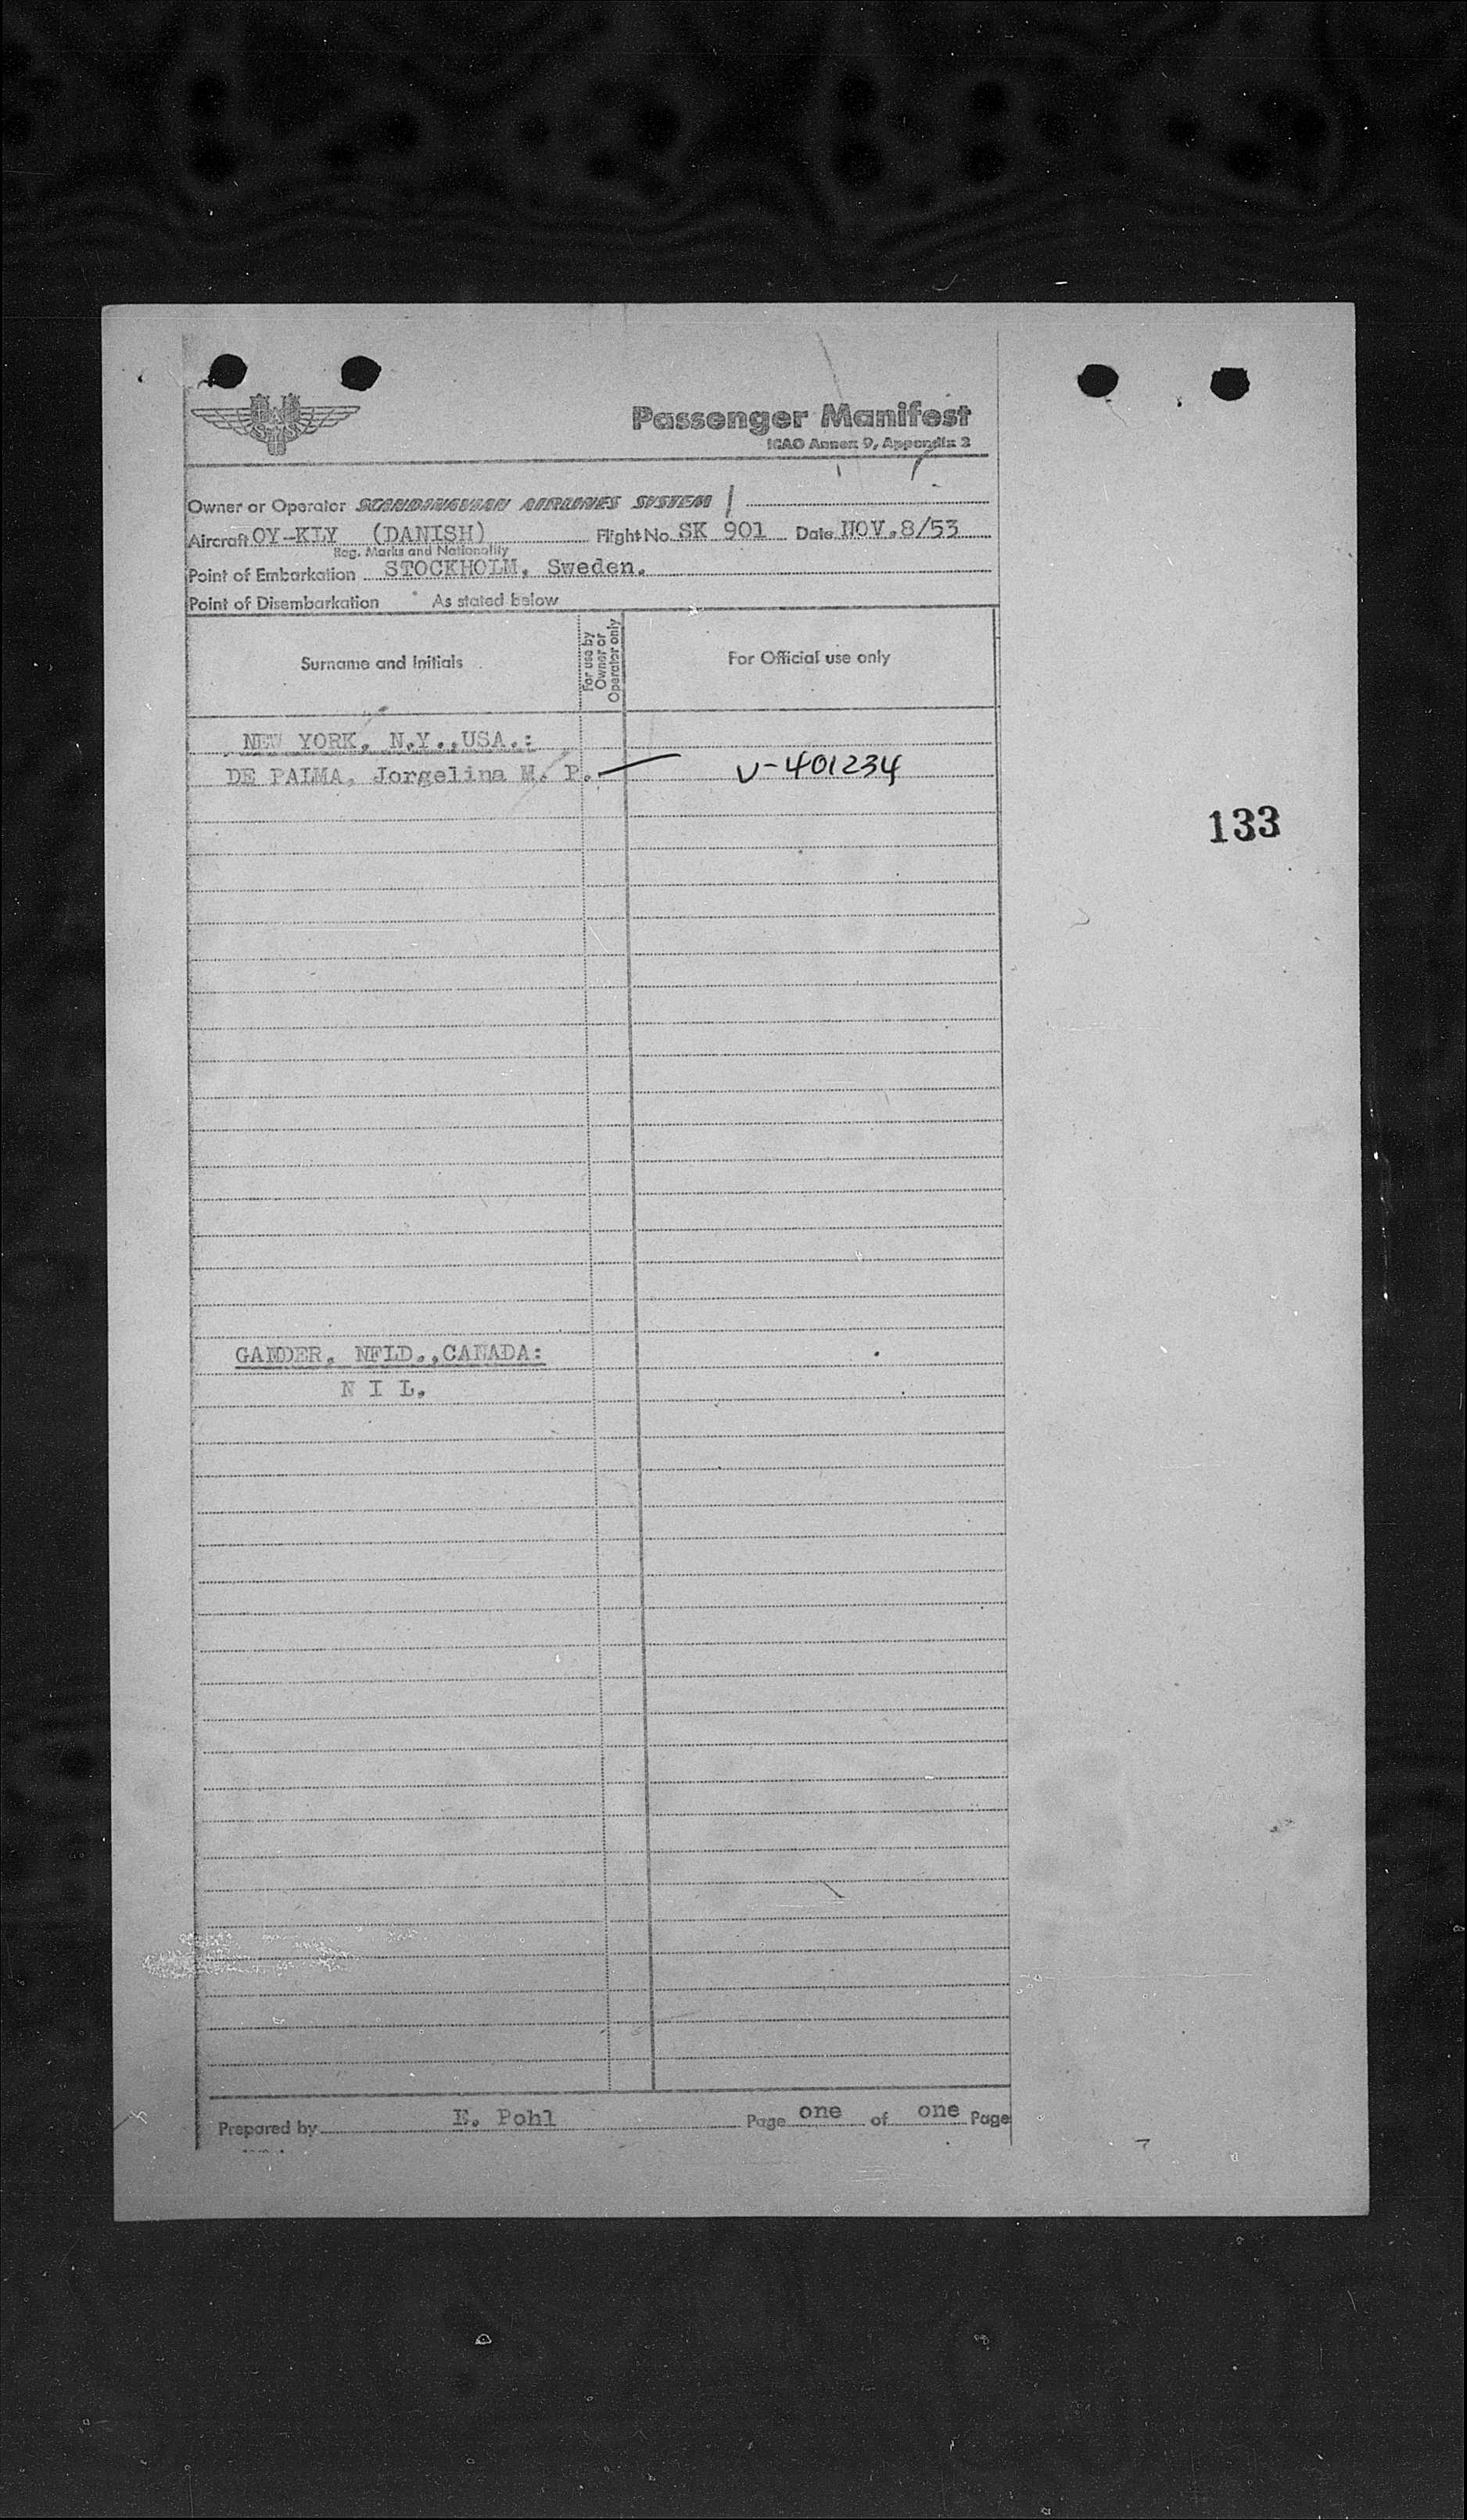 Passenger Manifest
ICAO Annex 9, Appendix 2
Owner or Operator SCANDINAVIAN AIRLINES SYSTEM
Aircraft OY-KLY (DANISH) Flight No. SK 901 Date NOV.8/53
Reg. Marks and Nationality
Point of Embarkation STOCKHOLM, Sweden.
Point of Disembarkation As stated below
Surname and Initials
For use by
Owner or
Operator only
For Official use only
NEW YORK, N.Y.,USA.:
DE PALMA, Jorgelina M. P. V-401234
133
GANDER, NFLD.,CANADA:
N I L.
Prepared by E. Pohl Page one of one Page